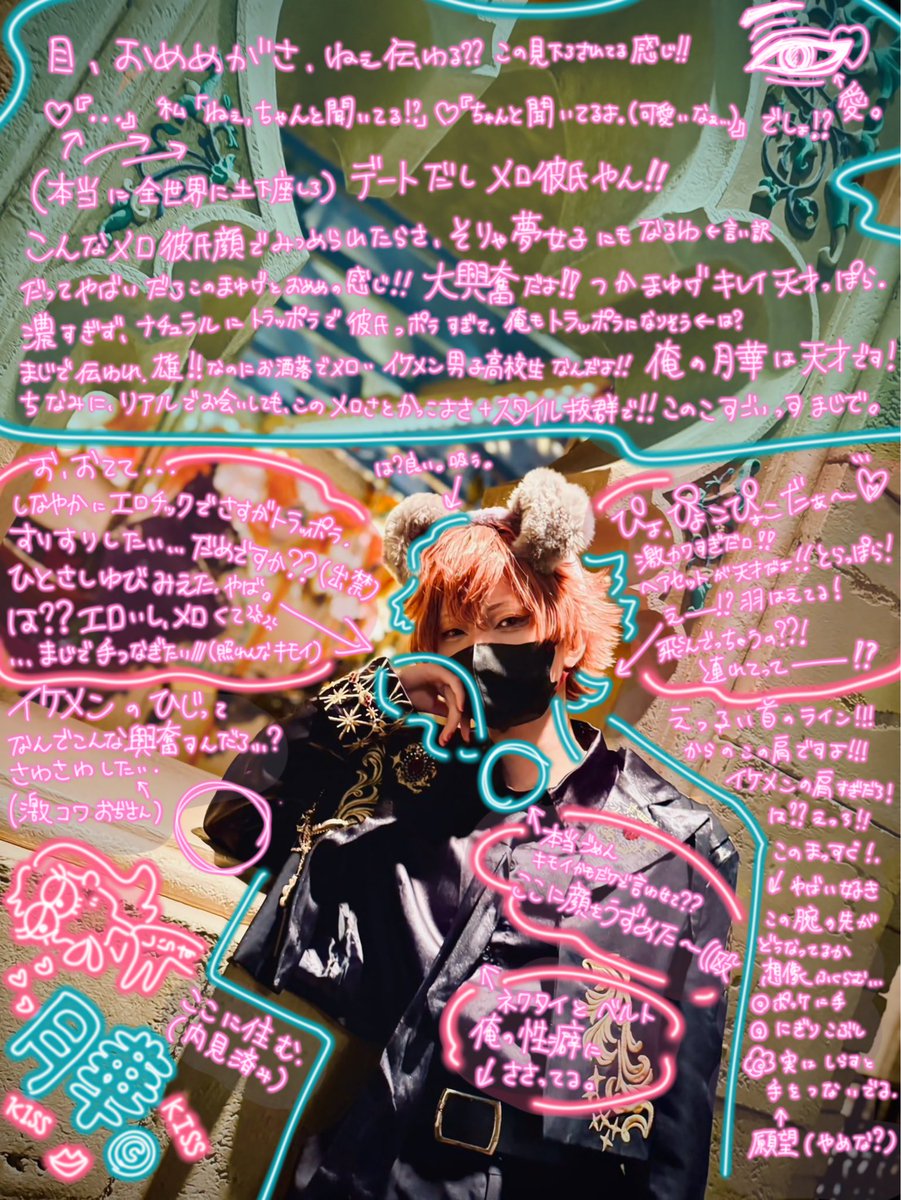 目、おめめがさ、ねぇ伝わる?? この見下されてる感じ!!
♡『...』 私「ねぇ、ちゃんと聞いてる!?」♡『ちゃんと聞いてるよ。(可愛いなぁ〜)』でしょ!?
愛。
(本当に全世界に土下座しろ) デートだしメロ彼氏やん!!
こんなメロ彼氏顔でみつめられたらさ、そりゃ夢女子にもなるわ←言い訳
だってやばいだろこのまゆげとおめめの感じ!! 大興奮だよ!! つかまゆげキレイ天才っぽら.
濃すぎず、ナチュラルにトラッポラで彼氏っポラすぎて、俺もトラッポラになりそう←は?
まじで伝われ、雄!! なのにお洒落でメロいイケメン男子高校生なんだよ!! 俺の月華は天才です!
ちなみに、リアルでお会いしても、このメロさとかっこよさ+スタイル抜群で!! このこすごいっすまじで。
お、おてて...
しなやかにエロチックでさすがトラッポラ.
すりすりしたい...だめですか??(出禁)
ひとさしゆびみえた、やば。
は??エロいし、メロくて
...まじで手つなぎたい///(照れんなキモイ)
は?良い。吸う。
ぴょ、ぴょこぴょこだぁ〜♡
激カワすぎだロ!!
ヘアセットが天才だよ!! とらっぽら!
えー!? 羽はえてる!
飛んでっちゃうの??!
連れてってー!?
イケメンのひじって
なんでこんな興奮すんだろ...?
さわさわしたい..
(激コワおぢさん)
えっろい首のライン!!!
からのこの肩ですよ!!!
イケメンの肩すぎだろ!
は??えっろ!!
このまっすぐ!.
やばい好き
この腕の先が
どうなってるか
想像ふくらむ...
@ポケに手
@にぎりこぶし
実はしらすと
手をつないでる.
願望(やめな?)
本当ごめん
キモイかもだけど言わせて??
ここに顔をうずめた〜い(殴
ネクタイとベルト
俺の性癖に
ささってる。
ここに住む.
(内見済み)
月華
KISS
KISS